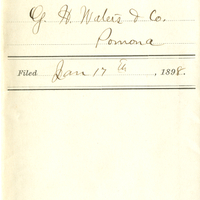 G. H. Waters & Co.
Pomona
Filed Jan 17th, 1898.